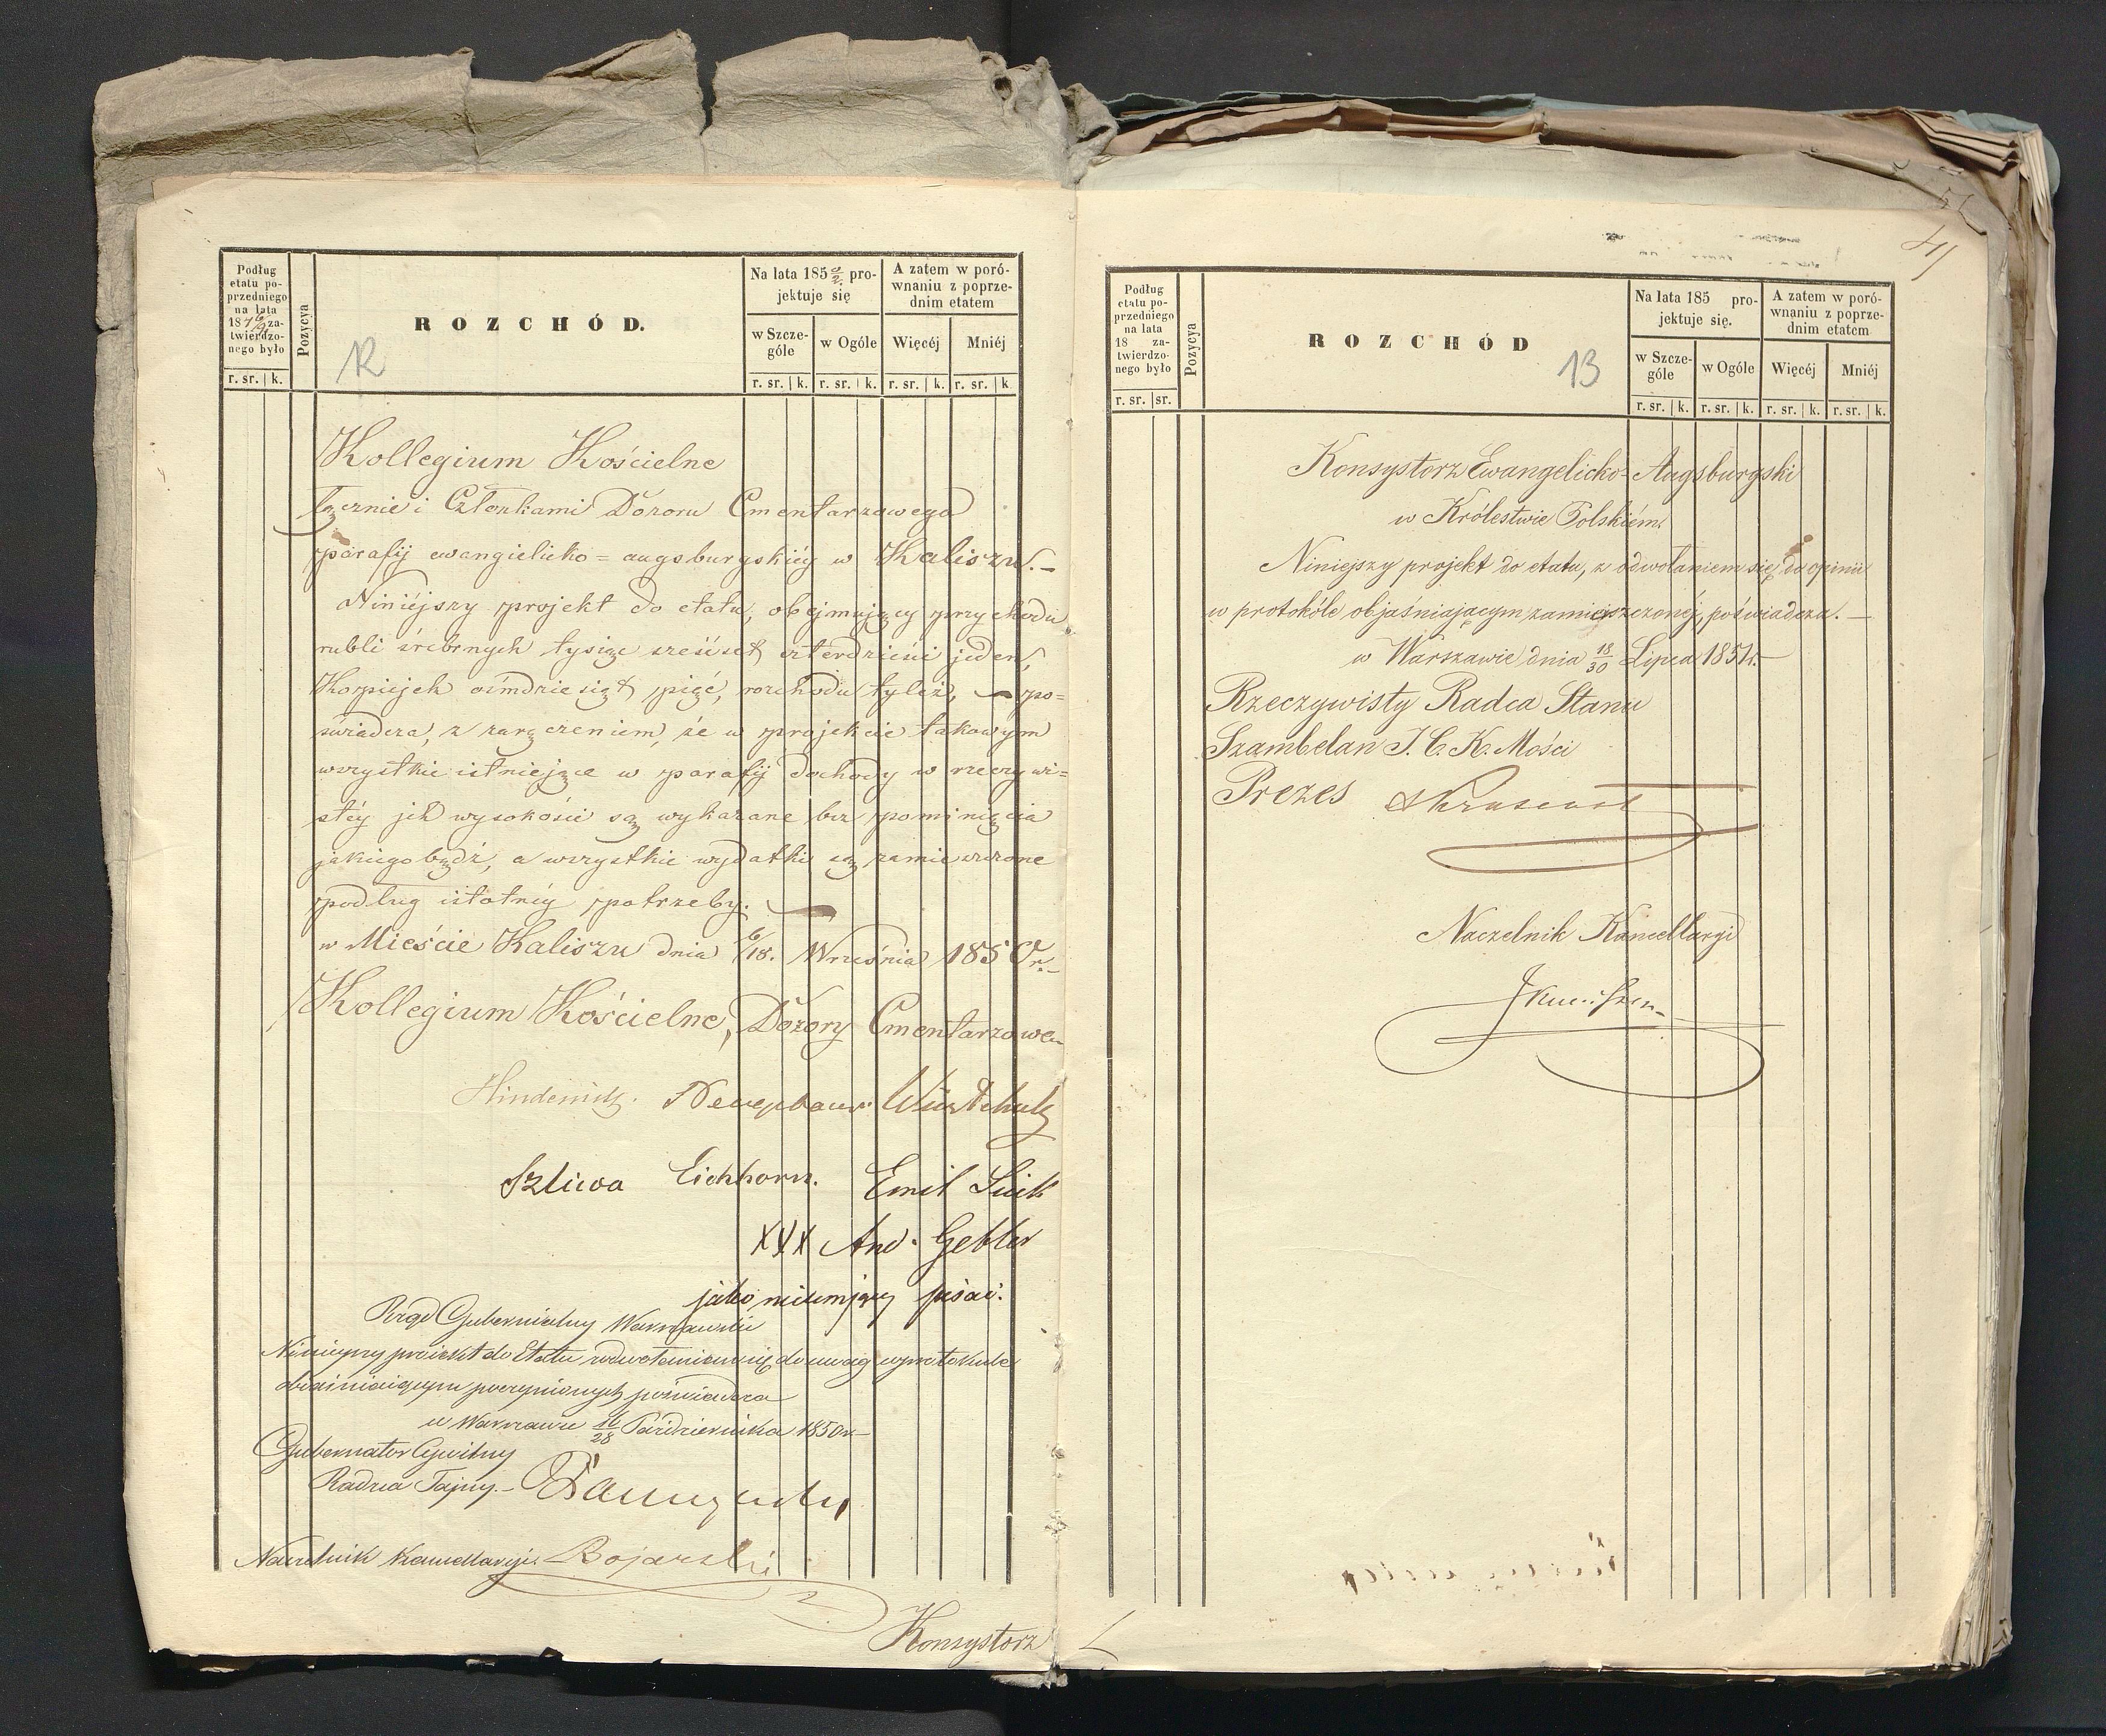 Podług
etatu po-
przedniego
na lata
18 46/9 za-
twierdzo-
nego było
Pozycya
ROZCHÓD.
12
Na lata 185 0/2 pro-
jektuje się
A zatem w poró-
wnaniu z poprze-
dnim etatem
w Szcze-
góle
w Ogóle
Więcéj
Mniéj
r. sr. k. r. sr. k. r. sr. k. r. sr. k. r. sr. k.
Kollegium Kościelne
łącznie i Członkami Dozoru Cmentarzowego
parafij ewangielicko = augsburgskiéj w Kaliszu. –
Niniéjszy projekt do etatu, obejmujący przychodu
rubli śrebrnych tysiąc sześćset czterdzieści jeden,
Kopiejek ośmdziesiąt pięć, rozchodu tyleż, – po=
świadcza, z zaręczeniem, że w projekcie takowym
wszystkie istniejące w parafij dochody w rzeczywi=
stéj ich wysokości są wykazane bez pominięcia
jakiegobądź, a wszystkie wydatki są zamieszczone
podług istotnéj potrzeby. –
w Mieście Kaliszu dnia 6/18. Września 1850 r. –
Kollegium Kościelne, Dozory Cmentarzowe
Szliwa Eichhorn. Emil
XXX And. Gebler
jako nieumjący pisać.
Rząd Gubernialny Warszawski
Niniejszy projekt do Etatu z odwołaniem się do uwag w protokule
obiaśniaiącym poczynionych poświadcza
w Warszawie 16/28 Października 1850 r –
Gubernator Cywilny
Radzca Tajny. –
Naczelnik Kancellaryi Bojarski
Konsystorz
41
Podług
etatu po-
przedniego
na lata
18 za-
twierdzo-
nego było
Pozycya
ROZCHÓD
13
Na lata 185 pro-
jektuje się.
A zatem w poró-
wnaniu z poprze-
dnim etatem
w Szcze-
góle
w Ogóle
Więcéj
Mniéj
r. sr. sr. r. sr. k. r. sr. k. r. sr. k. r. sr. k.
Konsystorz Ewangelicko-Augsburgski
w Królestwie Polskiém.
Niniejszy projekt do etatu, z odwołaniem się do opinii
w protokóle objaśniającym zamieszczonéj, poświadcza. –
w Warszawie dnia 18/30 Lipca 1851 r. –
Rzeczywisty Radca Stanu
Szambelan J. C. K. Mości
Prezes
Naczelnik Kancellaryi